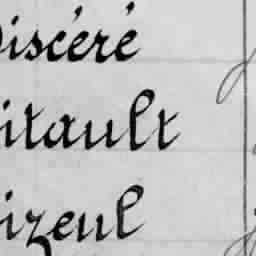 iscéré
itault
izeul